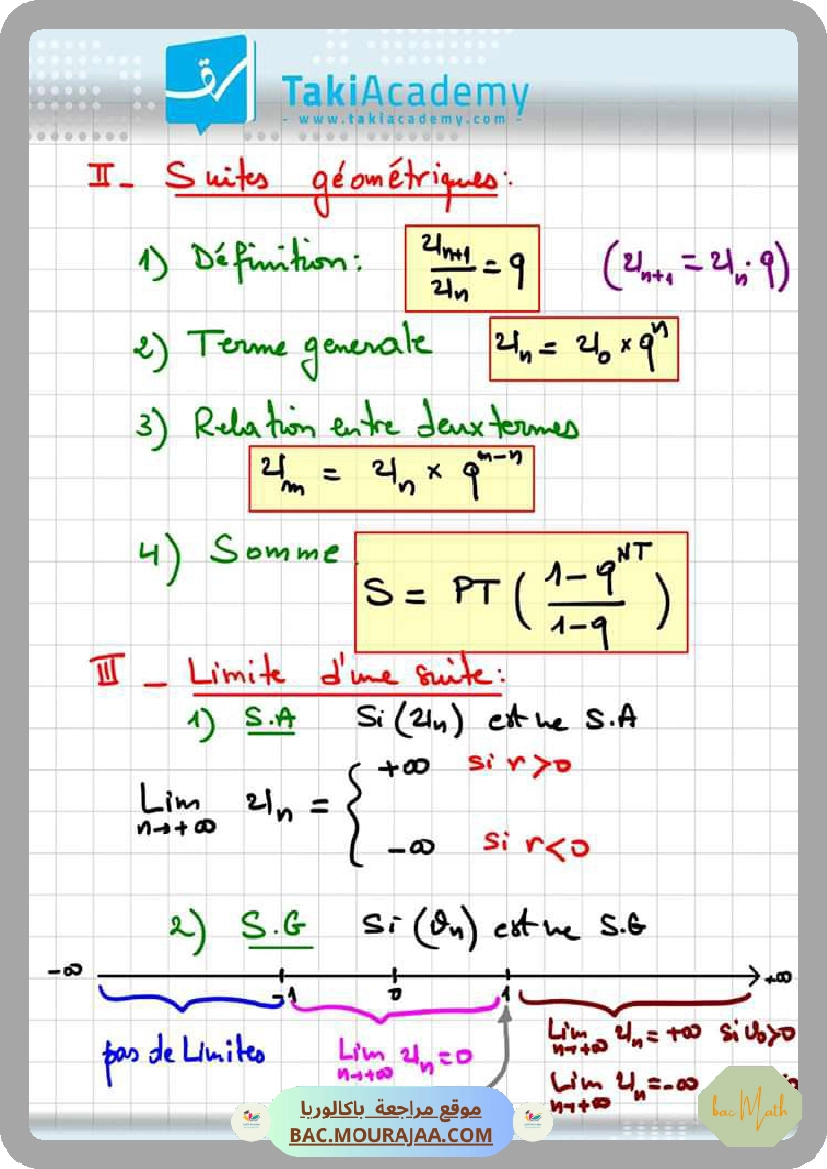 TakiAcademy
- www.takiacademy.com -
II - Suites géométriques:
1) Définition: U_{n+1}/U_n = q (U_{n+1} = U_n · q)
2) Terme generale U_n = U_0 × q^n
3) Relation entre deux termes
U_m = U_n × q^{m-n}
4) Somme S = PT ( (1 - q^{NT}) / (1 - q) )
III - Limite d'une suite:
1) S.A Si (U_n) est ue S.A
+∞ si r > 0
Lim n→+∞ U_n = {
-∞ si r < 0
2) S.G Si (V_n) est ue S.G
-∞ -1 0 1 +∞
pas de Limites
Lim n→+∞ U_n = 0
Lim n→+∞ U_n = +∞ si U_0 > 0
Lim n→+∞ U_n = -∞
موقع مراجعة باكالوريا
BAC.MOURAJAA.COM
bac Math